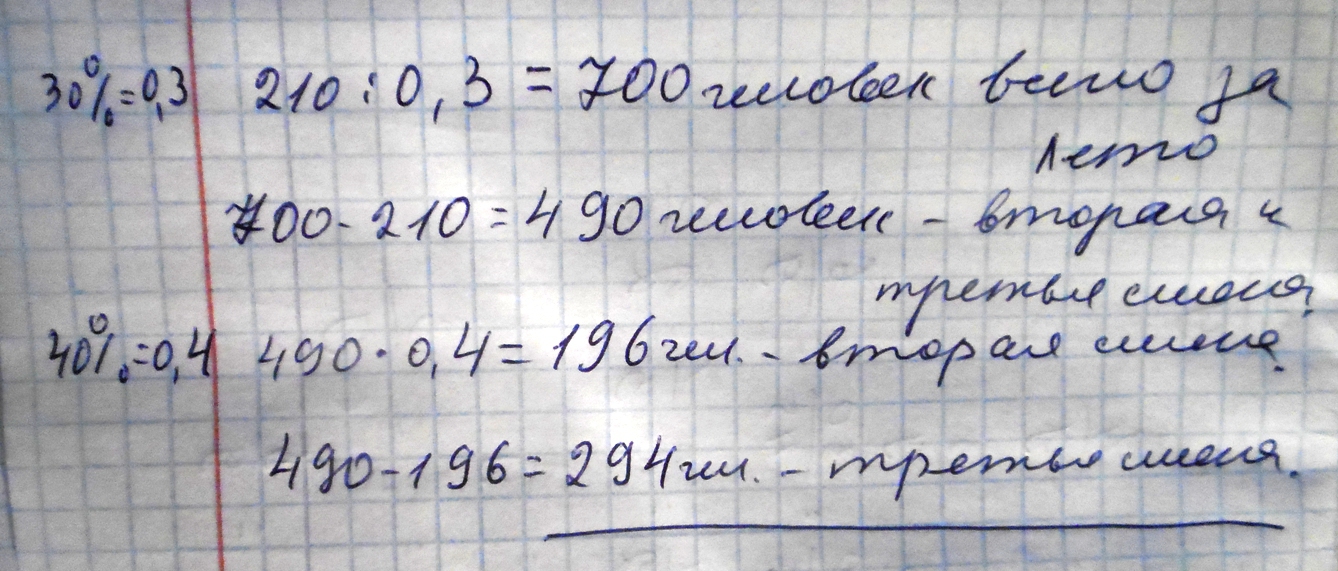 30%=0,3 210:0,3=700 человек всего за
лето
700-210=490 человек - вторая и
третья смена.
40%=0,4 490·0,4=196 чел. - вторая смена.
490-196=294 чел. - третья смена.